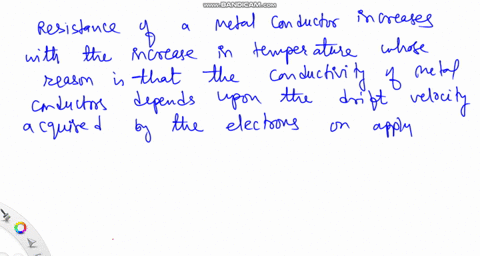 www.BANDICAM.com
Resistance of a metal conductor increases
with the increase in temperature whose
reason is that the conductivity of metal
conductors depends upon the drift velocity
acquired by the electrons on apply